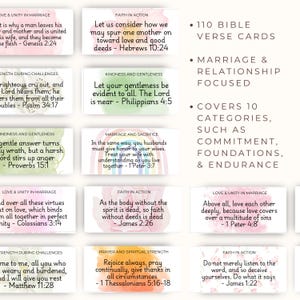 LOVE & UNITY IN MARRIAGE
is why a man leaves his
and mother and is united
his wife, and they become
flesh - Genesis 2:24
FAITH IN ACTION
Let us consider how we
may spur one another on
toward love and good
deeds - Hebrews 10:24
STRENGTH DURING CHALLENGES
righteous cry out, and
Lord hears them; he
them from all their
- Psalm 34:17
KINDNESS AND GENTLENESS
Let your gentleness be
evident to all. The Lord
is near - Philippians 4:5
KINDNESS AND GENTLENESS
gentle answer turns
wrath, but a harsh
word stirs up anger
- Proverbs 15:1
MARRIAGE AND SACRIFICE
In the same way, you husbands
must give honor to your
wives. Treat your wife with
understanding as you live
together - 1 Peter 3:7
LOVE & UNITY IN MARRIAGE
over all these virtues
on love, which binds
all together in perfect
unity - Colossians 3:14
FAITH IN ACTION
As the body without the
spirit is dead, so faith
without deeds is dead
- James 2:26
LOVE & UNITY IN MARRIAGE
Above all, love each other
deeply, because love covers
over a multitude of sins
- 1 Peter 4:8
STRENGTH DURING CHALLENGES
to me, all you who
weary and burdened,
and I will give you rest
- Matthew 11:28
PRAYER AND SPIRITUAL STRENGTH
Rejoice always, pray
continually, give thanks in
all circumstances
- 1 Thessalonians 5:16-18
FAITH IN ACTION
Do not merely listen to the
word, and so deceive
yourselves. Do what it says
- James 1:22
• 110 BIBLE
VERSE CARDS
• MARRIAGE &
RELATIONSHIP
FOCUSED
• COVERS 10
CATEGORIES,
SUCH AS
COMMITMENT,
FOUNDATIONS,
& ENDURANCE